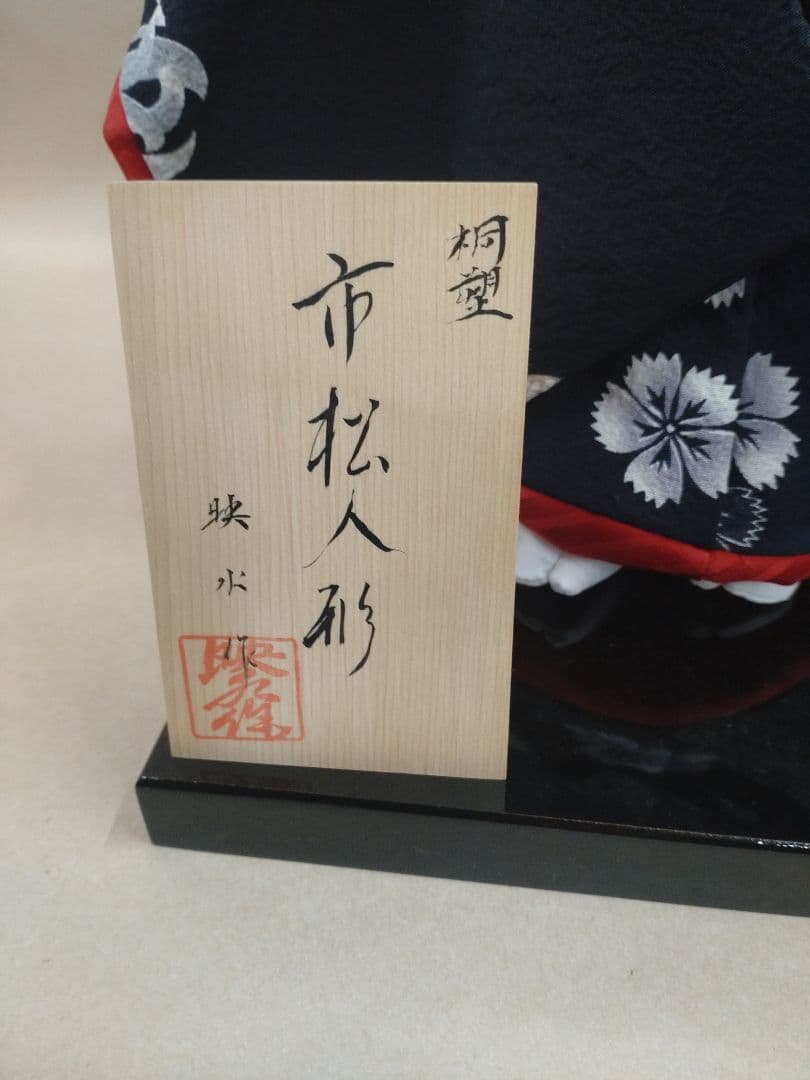 桐塑
市松人形
映水作